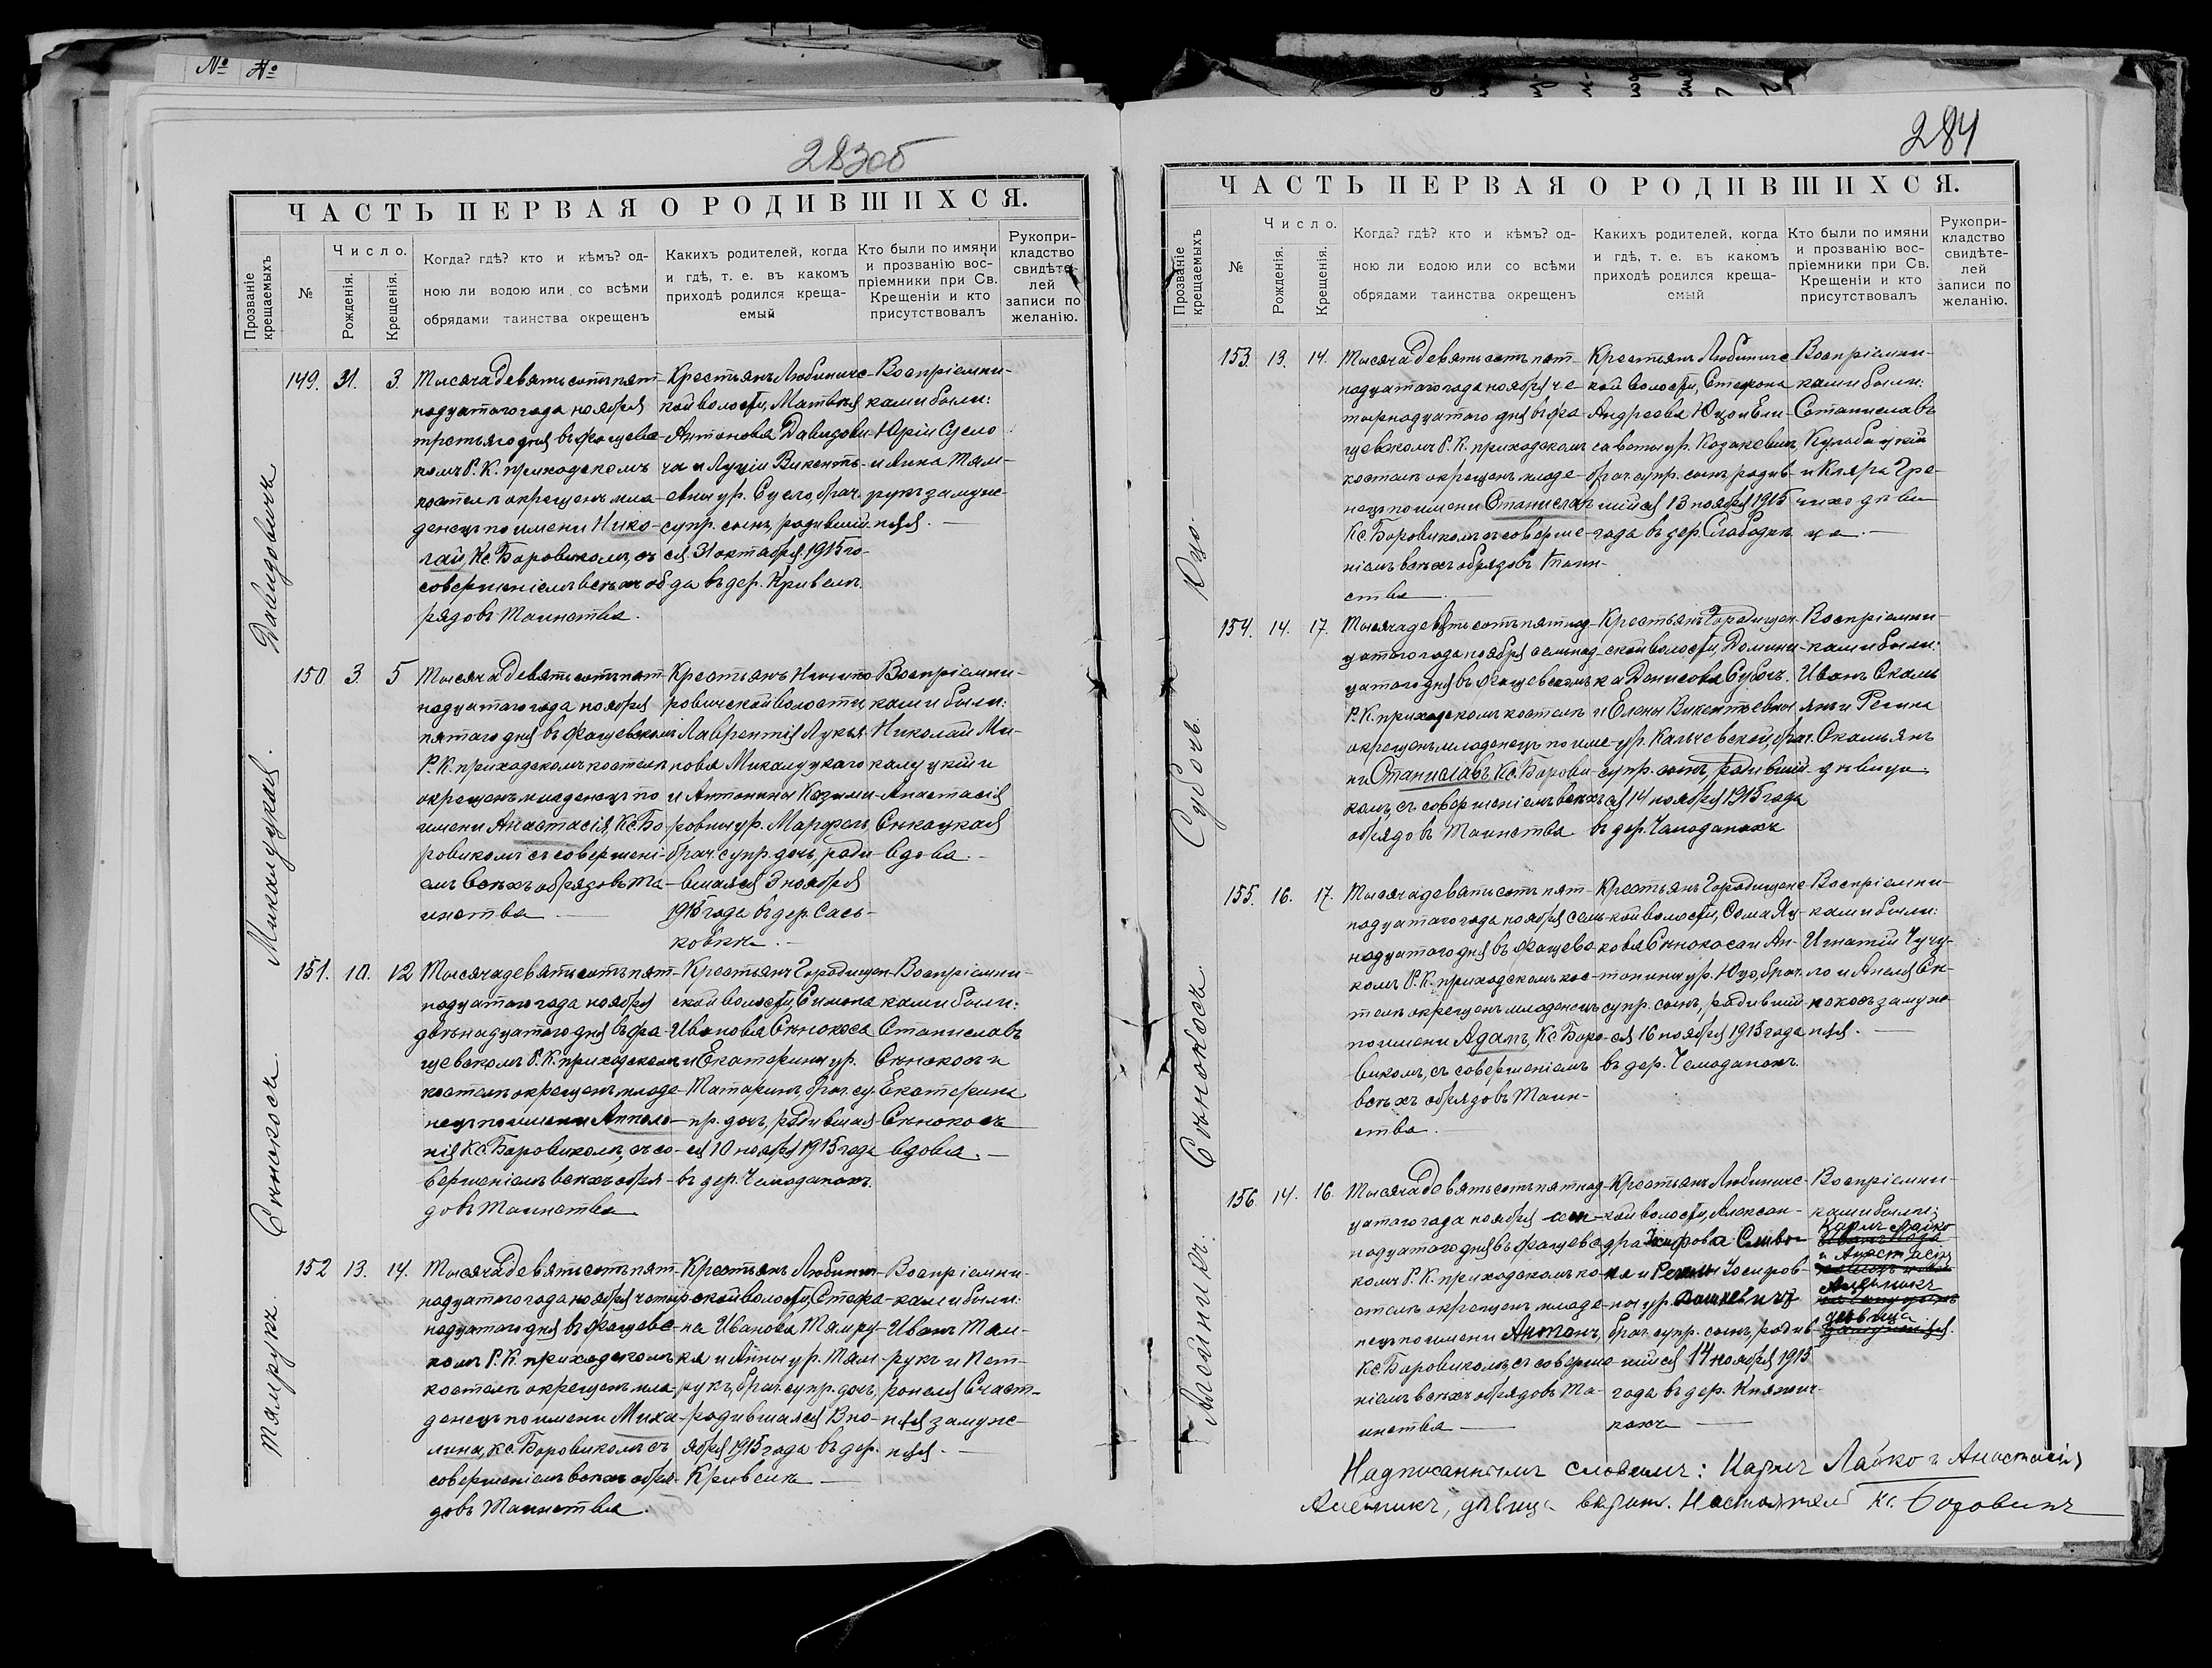 № №
283об
ЧАСТЬ ПЕРВАЯ О РОДИВШИХСЯ.
Прозваніе крещаемыхъ
№
Число.
Рожденія.
Крещенія.
Когда? гдѣ? кто и кѣмъ? од-
ною ли водою или со всѣми
обрядами таинства окрещенъ
Какихъ родителей, когда
и гдѣ, т. е. въ какомъ
приходѣ родился креща-
емый
Кто были по имяни
и прозванію вос-
пріемники при Св.
Крещеніи и кто
присутствовалъ
Рукопри-
кладство
свидѣте-
лей
записи по
желанію.
Давидовичъ
149. 31. 3.
Тысяча девятьсотъ пят-
надцатого года ноября
третьяго дня въ Фащевс-
комъ Р. К. приходскомъ
костелѣ окрещенъ мла-
денецъ по имени Нико-
лай, Кс. Боровикомъ, съ
совершеніемъ всѣхъ об-
рядовъ Таинства.
Крестьянъ Любинис-
кой волости, Матвѣя
Антонова Давидови-
ча и Луціи Викенть-
евны ур. Сусло, брач.
супр. сынъ, родивший-
ся 31 октября 1915 го-
да въ дер. Кривели.
Воспріемни-
ками были:
Юрій Сусло
и Анна Там-
рукъ замуж-
няя.
Микалуцкая.
150 3. 5
Тысяча девятьсотъ пят-
надцатого года ноября
пятаго дня въ Фащевскомъ
Р. К. приходскомъ костелѣ
окрещенъ младенецъ по
имени Анастасія, Кс. Бо-
ровикомъ съ совершені-
емъ всѣхъ обрядовъ Та-
инства
Крестьянъ
ровичской волости
Лаврентія Лукья-
нова Микалуцкаго
и Антонины Казими-
ровны ур.
брач. супр. дочь, роди-
вшаяся 3 ноября
1915 года въ дер. Сась-
ковки.
Воспріемни-
ками были:
Николай Ми-
калуцкій и
Анастасія
Сѣкацкая
вдова.
Сѣнокосъ.
151. 10. 12
Тысяча девятьсотъ пят-
надцатого года ноября
двѣнадцатого дня въ Фа-
щевскомъ Р. К. приходскомъ
костелѣ окрещенъ младе-
нецъ по имени Аполо-
нія Кс. Боровикомъ, съ со-
вершеніемъ всѣхъ обря-
довъ Таинства
Крестьянъ Городищен-
ской волости, Симона
Иванова Сѣнокоса
и Екатерины ур.
Татаринъ, брач. су-
пр. дочь, родившая-
ся 10 ноября 1915 года
въ дер. Чемоданахъ.
Воспріемни-
ками были:
Станиславъ
Сѣнокосъ и
Екатерина
Сѣнокосъ
вдова.
Тамрукъ.
152 13. 14.
Тысяча девятьсотъ пят-
надцатого года ноября четыр-
надцатого дня въ Фащевс-
комъ Р. К. приходскомъ
костелѣ окрещенъ мла-
денецъ по имени Миха-
лина, кс. Боровикомъ съ
совершеніемъ всѣхъ обря-
довъ Таинства.
Крестьянъ Любинич-
ской волости, Стефа-
на Иванова Тамру-
ка и Анны ур. Там-
рукъ, брач. супр. дочь,
родившаяся 13 но-
ября 1915 года въ дер.
Кривели
Воспріемни-
ками были:
Иванъ Там-
рукъ и Пет-
ронеля Счаст-
ная замуж-
няя.
284
ЧАСТЬ ПЕРВАЯ О РОДИВШИХСЯ.
Прозваніе крещаемыхъ
№
Число.
Рожденія.
Крещенія.
Когда? гдѣ? кто и кѣмъ? од-
ною ли водою или со всѣми
обрядами таинства окрещенъ
Какихъ родителей, когда
и гдѣ, т. е. въ какомъ
приходѣ родился креща-
емый
Кто были по имяни
и прозванію вос-
пріемники при Св.
Крещеніи и кто
присутствовалъ
Рукопри-
кладство
свидѣте-
лей
записи по
желанію.
Юцо.
153. 13. 14.
Тысяча девятьсотъ пят-
надцатого года ноября че-
тырнадцатого дня въ Фа-
щевскомъ Р. К. приходскомъ
костелѣ окрещенъ младе-
нецъ по имени Станиславъ
Кс. Боровикомъ съ соверше-
ніемъ всѣхъ обрядовъ Таин-
ства
Крестьянъ Любинис-
кой волости, Стефана
Андреева Юцо и Ели-
саветы ур. Козакевичъ,
брач. супр. сынъ родив-
шийся 13 ноября 1915
года въ дер. Слабодкѣ
Воспріемни-
ками были:
Станиславъ
Кулабуцкій
и Кляра Гре-
чихо дѣви-
ца.
Субочъ.
154. 14. 17.
Тысяча девятьсотъ пятнад-
цатого года ноября семнад-
цатого дня въ Фащевскомъ
Р. К. приходскомъ костелѣ
окрещенъ младенецъ по име-
ни Станиславъ Кс. Борови-
комъ, съ совершеніемъ всѣхъ
обрядовъ Таинства
Крестьянъ Городищен-
ской волости, Домини-
ка Денисова Субочъ
и Елены Викентьевны
ур. Кальчевской, брач.
супр. сынъ, родивший-
ся 14 ноября 1915 года
въ дер. Чемоданахъ
Воспріемни-
ками были:
Иванъ Скамь-
янъ и Регина
Скамьянъ
дѣвица.
Сѣнокосъ.
155. 16. 17.
Тысяча девятьсотъ пят-
надцатого года ноября сем-
надцатого дня въ Фащевс-
комъ Р. К. приходскомъ кос-
телѣ окрещенъ младенецъ
по имени Адамъ, Кс. Боро-
викомъ, съ совершеніемъ
всѣхъ обрядовъ Таин-
ства.
Крестьянъ Городищенс-
кой волости, Сома Яку-
кова Сѣнокоса и Ан-
тонины ур. Юцо, брач.
супр. сынъ, родивший-
ся 16 ноября 1915 года
въ дер. Чемоданахъ.
Воспріемни-
ками были:
Игнатій Чучу-
ло и Анеля Сѣ-
нокосъ замуж-
няя.
Алейникъ.
156. 14. 16.
Тысяча девятьсотъ пятнад-
цатого года ноября
надцатого дня въ Фащевс-
комъ Р. К. приходскомъ ко-
стелѣ окрещенъ младе-
нецъ по имени Антонъ,
Кс. Боровикомъ съ соверше-
ніемъ всѣхъ обрядовъ Та-
инства
Крестьянъ Любинис-
кой волости, Алексан-
дра
и Регины Іосифов-
ны ур.
брач. супр. сынъ, родив-
шийся 14 ноября 1915
года въ дер. Княжи-
кахъ
Воспріемни-
ками были:
Карлъ Лайко
и Анастасія
Алейникъ
дѣвица
Надписаннымъ словамъ: Карлъ Лайко и Анастасія
Алейникъ, дѣвица вѣрить. Настоятель Кс. Боровикъ